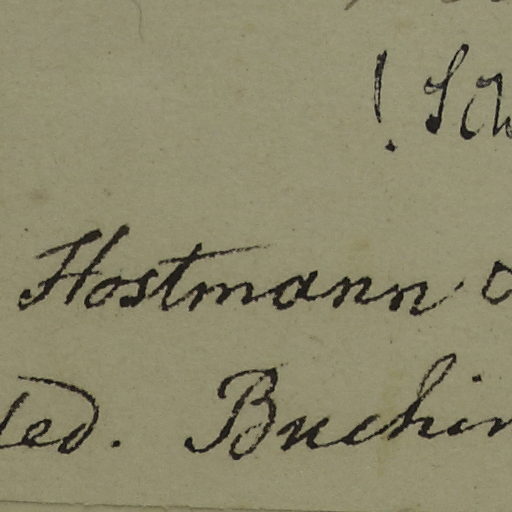 !
Hostmann
ted. Buchin